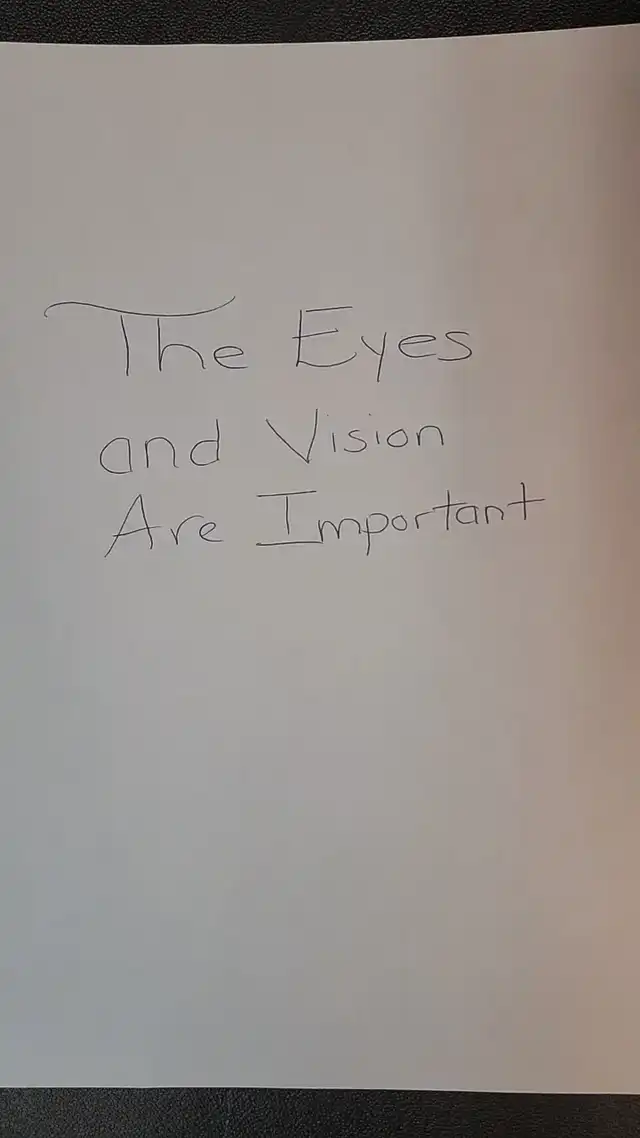 The Eyes
and Vision
Are Important